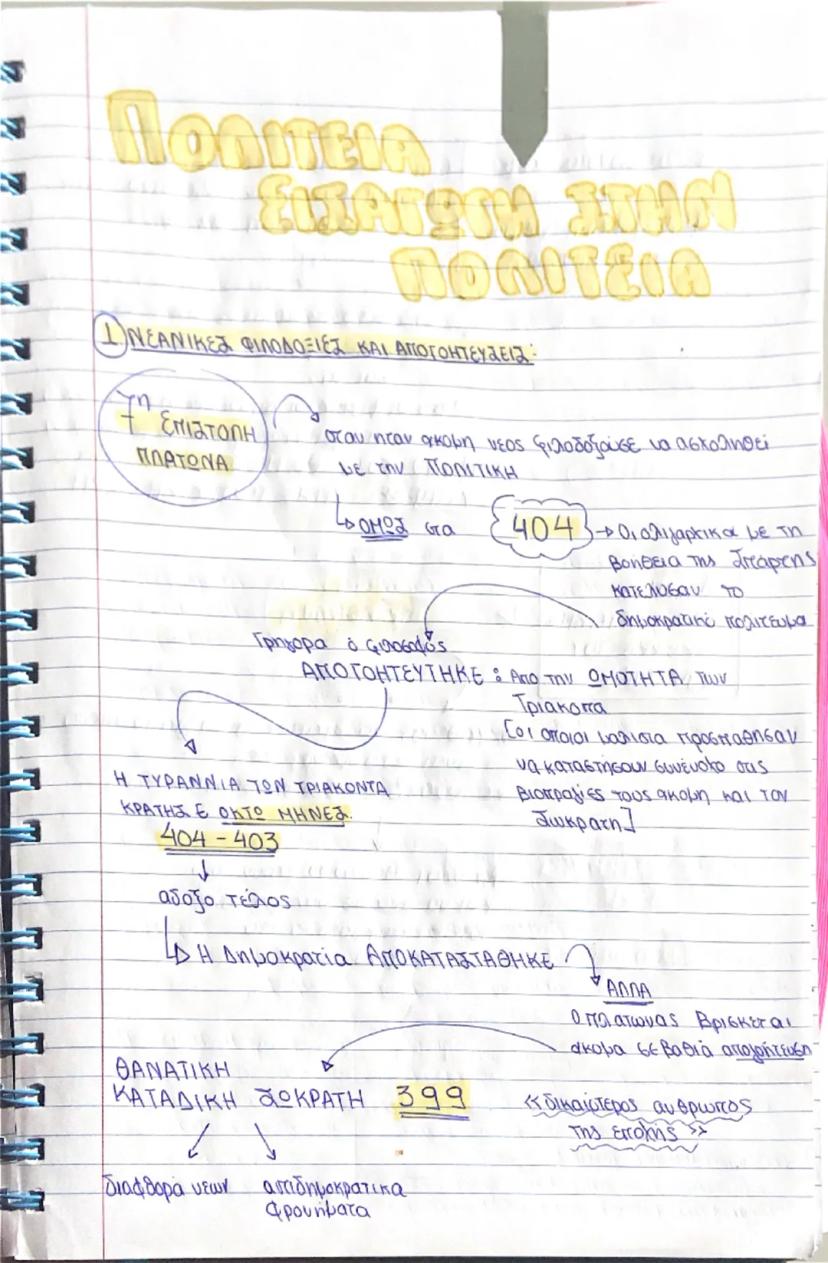 ΠΟΛΙΤΕΙΑ
ΕΙΣΑΓΩΓΗ ΣΤΗΝ
ΠΟΛΙΤΕΙΑ
1) ΝΕΑΝΙΚΕΣ ΦΙΛΟΔΟΞΙΕΣ ΚΑΙ ΑΠΟΓΟΗΤΕΥΣΕΙΣ:
7η
ΕΠΙΣΤΟΛΗ
ΠΛΑΤΩΝΑ
όταν ήταν ακόμη νέος φιλοδοξούσε να ασχοληθεί
με την ΠΟΛΙΤΙΚΗ
ΟΜΩΣ στα 404 → Οι ολιγαρχικοί με τη
βοήθεια της Σπάρτης
κατέλυσαν το
δημοκρατικό πολίτευμα
Γρήγορα ο φιλόσοφος
ΑΠΟΓΟΗΤΕΥΤΗΚΕ : Από την ΩΜΟΤΗΤΑ των
Τριάκοντα
[οι οποίοι μάλιστα προσπάθησαν
να καταστήσουν συνένοχο στις
βιοπραγίες τους ακόμη και τον
Σωκράτη]
Η ΤΥΡΑΝΝΙΑ ΤΩΝ ΤΡΙΑΚΟΝΤΑ
ΚΡΑΤΗΣΕ ΟΚΤΩ ΜΗΝΕΣ.
404 - 403
άδοξο τέλος
Η Δημοκρατία ΑΠΟΚΑΤΑΣΤΑΘΗΚΕ
ΑΛΛΑ
Ο Πλάτωνας Βρίσκεται
ακόμα σε βαθιά απογοήτευση
ΘΑΝΑΤΙΚΗ
ΚΑΤΑΔΙΚΗ ΣΩΚΡΑΤΗ 399
«δικαιότερος άνθρωπος
της εποχής»
διαφθορά νέων
αντιδημοκρατικά
φρονήματα